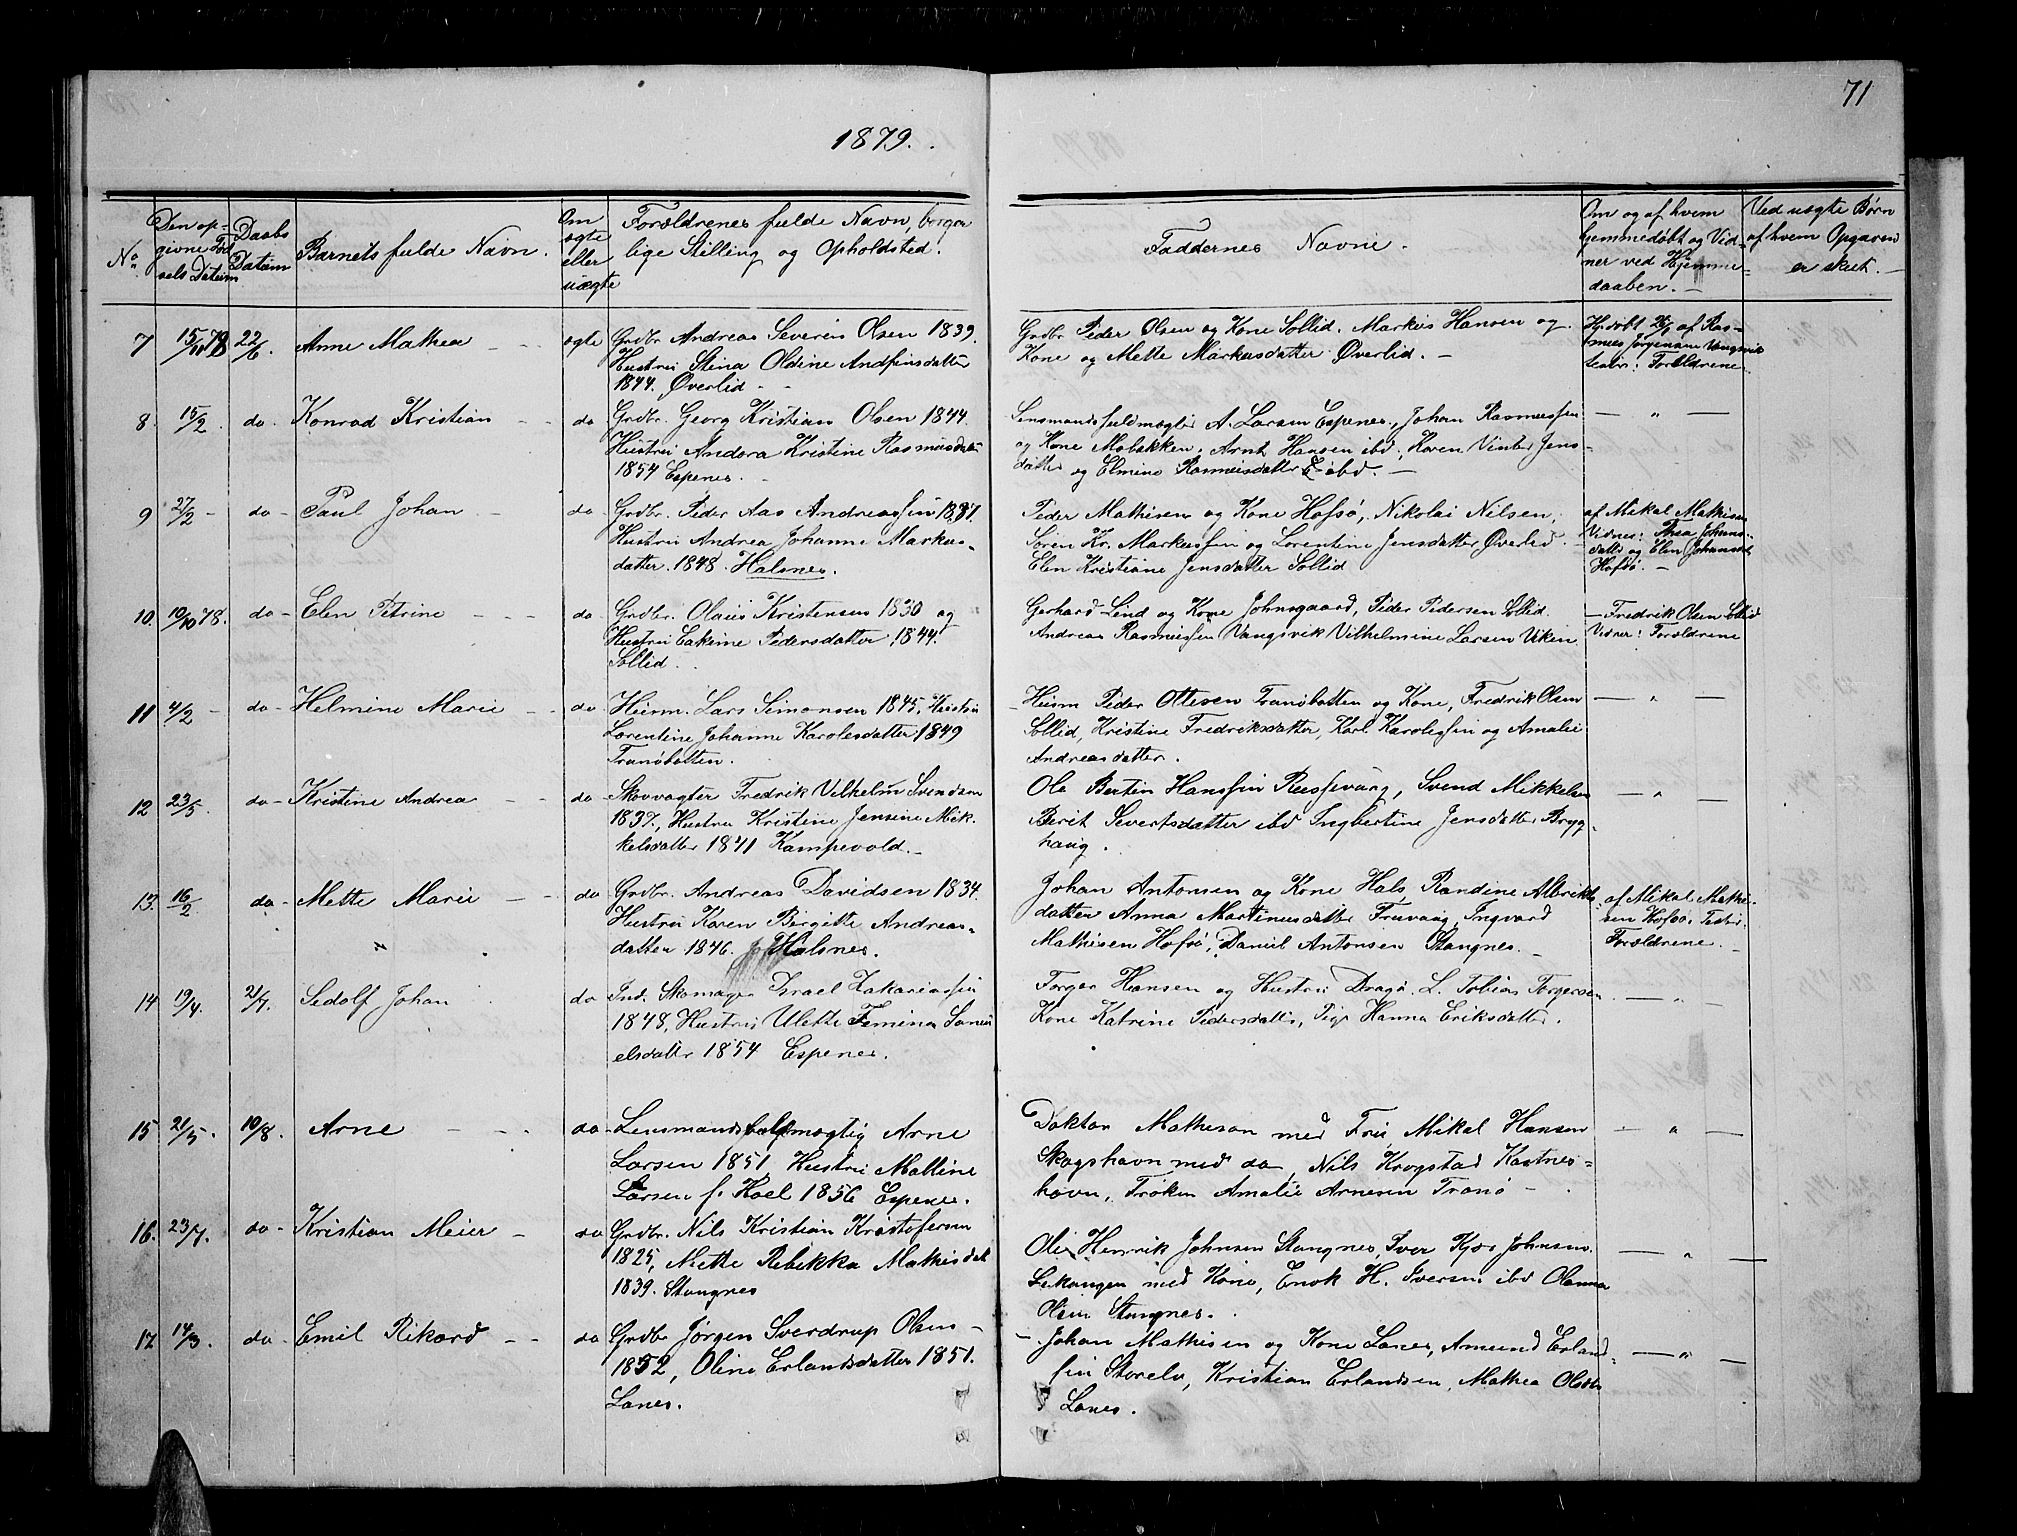 71
1879.
No
Den op-
givne Föd
sels Datum
Daabs
Datum
Barnets fulde Navn.
Om
ægte
eller
uægte
Forældrenes fulde Navn, borger
lige Stilling og Opholdsted.
Faddernes Navne.
Om og af hvem
hjemmedøbt og Vid-
ner ved Hjemme-
daaben. —
Ved uægte Børn
af hvem Opgaven
er skeet. —
7 15/11 78 22/6. Anne Mathea - - ægte
Grdbr. Andreas Severin Olsen 1839.
Hustru Stina Oldine Andfinsdatter
1844. Øverlid - -
Grdbr Peder Olsen og Kone Sollid. Markus Hansen og
Kone og Mette Markusdatter Øverlid. —
Hj.döbt af Ras-
mus Jörgensen Vangsvik
Forældrene
8. 15/2. do- Konrad Kristian - do
Grdbr. Georg Kristian Olsen 1844.
Hustru Andora Kristine Rasmusdatr
1854 Espenes. -
Lensmandsfuldmægtig A. Larsen Espenes, Johan Rasmussen
og Kone Mobakken. Arnt Hansen ibd. Karen Vinter Jens-
datter og Elmine Rasmusdatter ibd —
— " —
9 27/2 - do- Paul Johan - do.
Grdbr. Peder Aas Andreassen 1837.
Hustru Andrea Johanne Markus-
datter. 1848. Halsnes.
Peder Mathisen og Kone Hofsø, Nikolai Nilsen,
Sören Kr. Markussen og Lorentine Jensdatter Øverlid. -
Elen Kristiane Jensdatter Sollid
af Mikal Mathisen
Vidner: Thea Johans-
datter og Elen Johansdtr
Hofsø. —
10. 10/10 78. do- Elen Petrine - - - do
Grdbr. Olaus Kristensen 1830 og
Hustru Pedersdatter 1844.
Sollid. -
Gerhard Lind og Kone Johnsgaard, Peder Pedersen Sollid.
Andreas Rasmussen Vangsvik Vilhelmine Larsen Viken.
— Fredrik Olsen Sollid
Vidner: Forældrene
11 4/2 - do - Helmine Marie - - do
Husm. Lars Simonsen 1845, Hustru
Lorentine Johanne Karolesdatter 1849
Tranöbotten.
- Husm Peder Ottesen Tranöbotten og Kone, Fredrik Olsen
Sollid, Kristine Fredriksdatter, Karl Karolissen og Amalie
Andreasdatter.
— " —
12 23/5. do- Kristine Andrea - - do
Skovvogter Fredrik Vilhelm Svendsen
1837., Hustru Kristine Jensine Mik-
kelsdatter 1841 Kampevold. -
Ole Bertin Hanssen Russevaag, Svend Mikkelsen
Berit Sivertsdatter ibd Ingbertine Jensdatter Bryg-
haug.
— " —
13. 16/2. do- Mette Marie - - do
Grdbr. Andreas Davidsen 1834.
Hustru Karen Birgitte Andreas-
datter 1846. Halsnes.
Johan Antonsen og Kone Hals Randine Albrikts-
datter Anna Martinusdatter Fruvaag, Ingvard
Mathisen Hofsø, Daniel Antonsen Stangnes. -
af Mikal Mathi-
sen Hofsø. Test:
Forældrene. -
14 19/4. 21/7. Sedolf Johan do
Ind. Skomager Israel Zakariassen
1848, Hustru Ulette Femina Samu
elsdatter 1854 Espenes.
Torger Hansen og Hustru Dragø. L. Tobias Torgersen
Kone Katrine Pedersdatter, Pige Hanna Eriksdatter.
— " —
15 21/5. 10/8. Arne - - - do-
Lensmandsfuldmægtig Arne
Larsen 1851, Hustru Mattine
Larsen f. Hoel 1856 Espenes.
Doktor Matheson med Frue, Mikal Hansen
Skogshavn med do, Nils Krogstad Kastnes-
havn, Fröken Amalie Arnesen Tranö -
- " —
16. 23/7. do - Kristian Meier - do
Grdbr. Nils Kristian Kristofersen
1825, Mette Rebekka Mathisdat
1839. Stangnes
Ole Henrik Johnsen Stangnes, Iver Kjos Johnsen.
Leikangen med Kone, Enok H. Iversen ibd Olanna
Olsen Stangnes.
— " —
17 14/3. do - Emil Rikard - - do
Grdbr Jörgen Sverdrup Olsen -
1852, Oline Erlandsdatter 1851.
Lanes.
- Johan Mathisen og Kone Lanes, Amund Erland-
sen Storelv, Kristian Erlandsen, Mathea Olsdtr
Lanes.
— " —